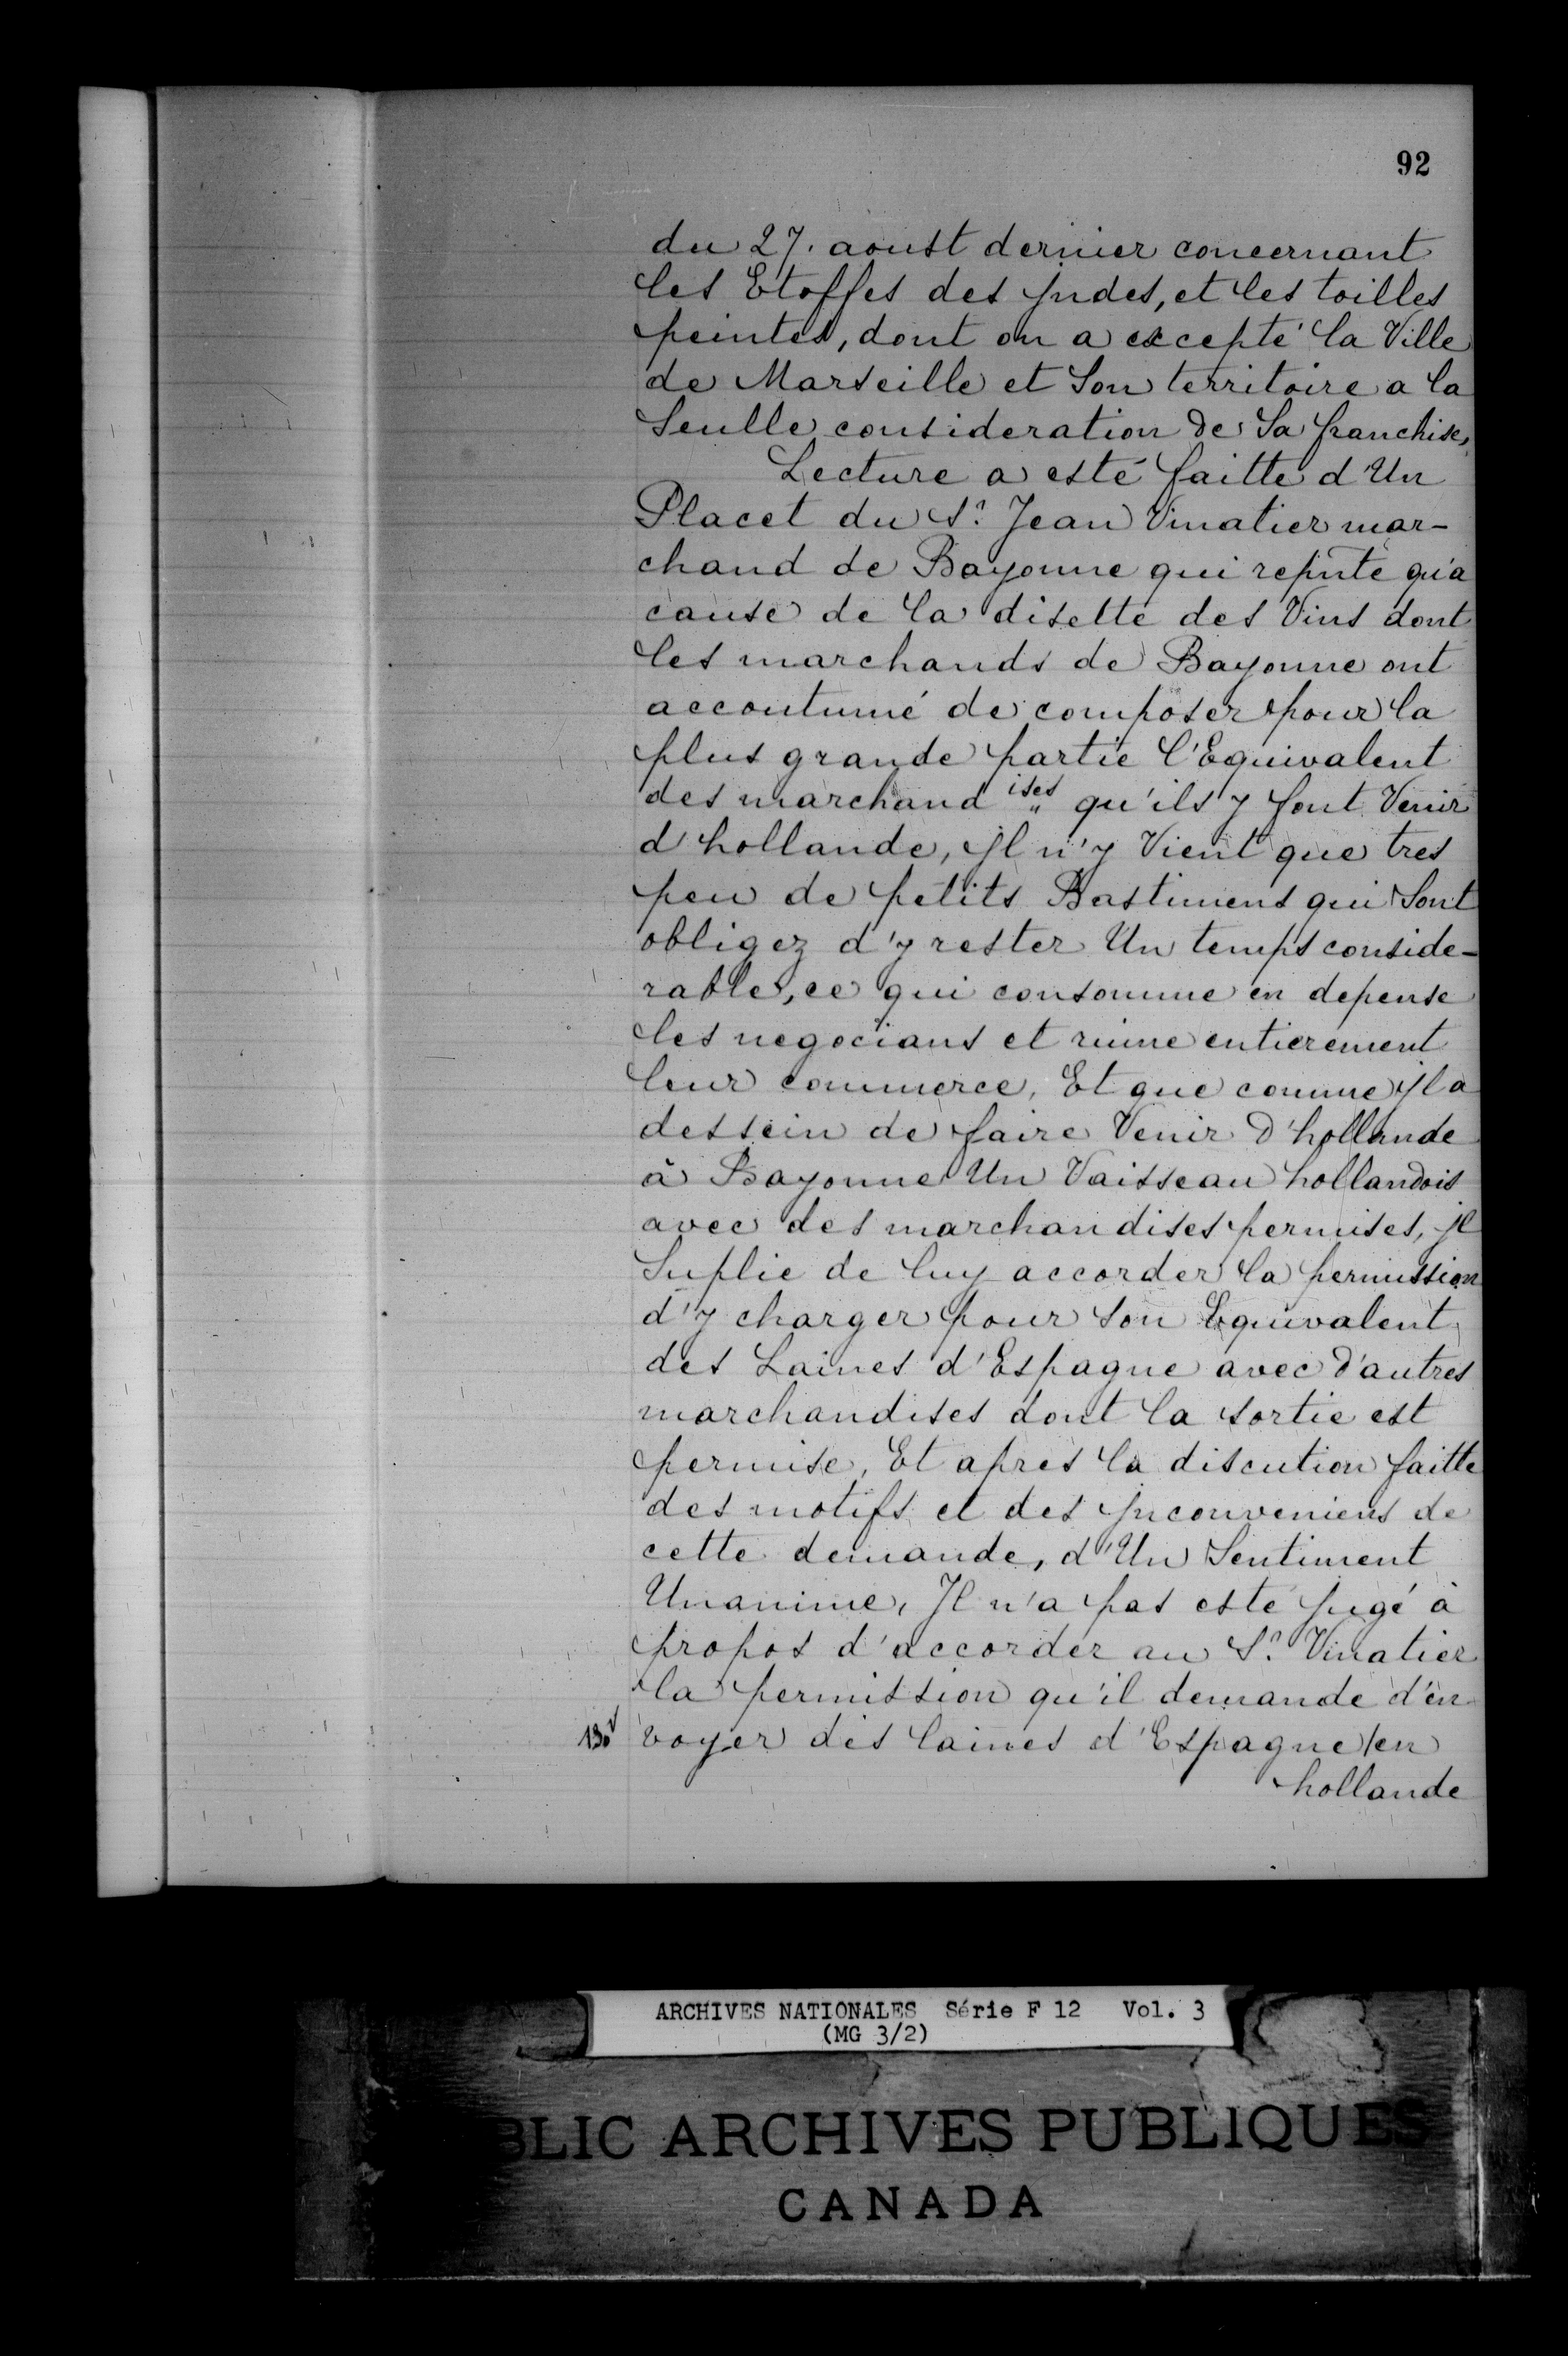 92
du 27. aoust dernier concernant
les Etoffes des Jndes, et les toilles
peintes, dont on a excepté la Ville
de Marseille et Son territoire a la
Seulle consideration de Sa franchise,
Lecture a esté faitte d'Un
Placet du Sr. Jean Vinatier mar-
chand de Bayonne qui repñte qu'a
cause de la disette des Vins dont
les marchands de Bayonne ont
accoutumé de composer pour la
plus grande partie l'Equivalent
des marchandises qu'ils y font Venir
d'hollande, jl n'y Vient que tres
peu de petits Bastimens qui Sont
obligez d'y rester Un temps conside-
rable, ce qui consomme en depense
les negocians et ruine entierement
leur commerce, Et que comme jl a
dessein de faire Venir d'hollande
à Bayonne Un Vaisseau hollandois
avec des marchandises permises, jl
Suplie de luy accorder la permission
d'y charger pour son Equivalent
des Laines d'Espagne avec d'autres
marchandises dont la sortie est
permise, Et apres la discution faitte
des motifs et des jnconveniens de
cette demande, d'Un Sentiment
Unanime, Jl n'a pas esté jugé à
propos d'accorder au Sr. Vinatier
la permission qu'il demande d'en
130v voyer des laines d'Espagne/en
hollande
ARCHIVES NATIONALES Série F 12 Vol. 3
(MG 3/2)
BLIC ARCHIVES PUBLIQUES
CANADA